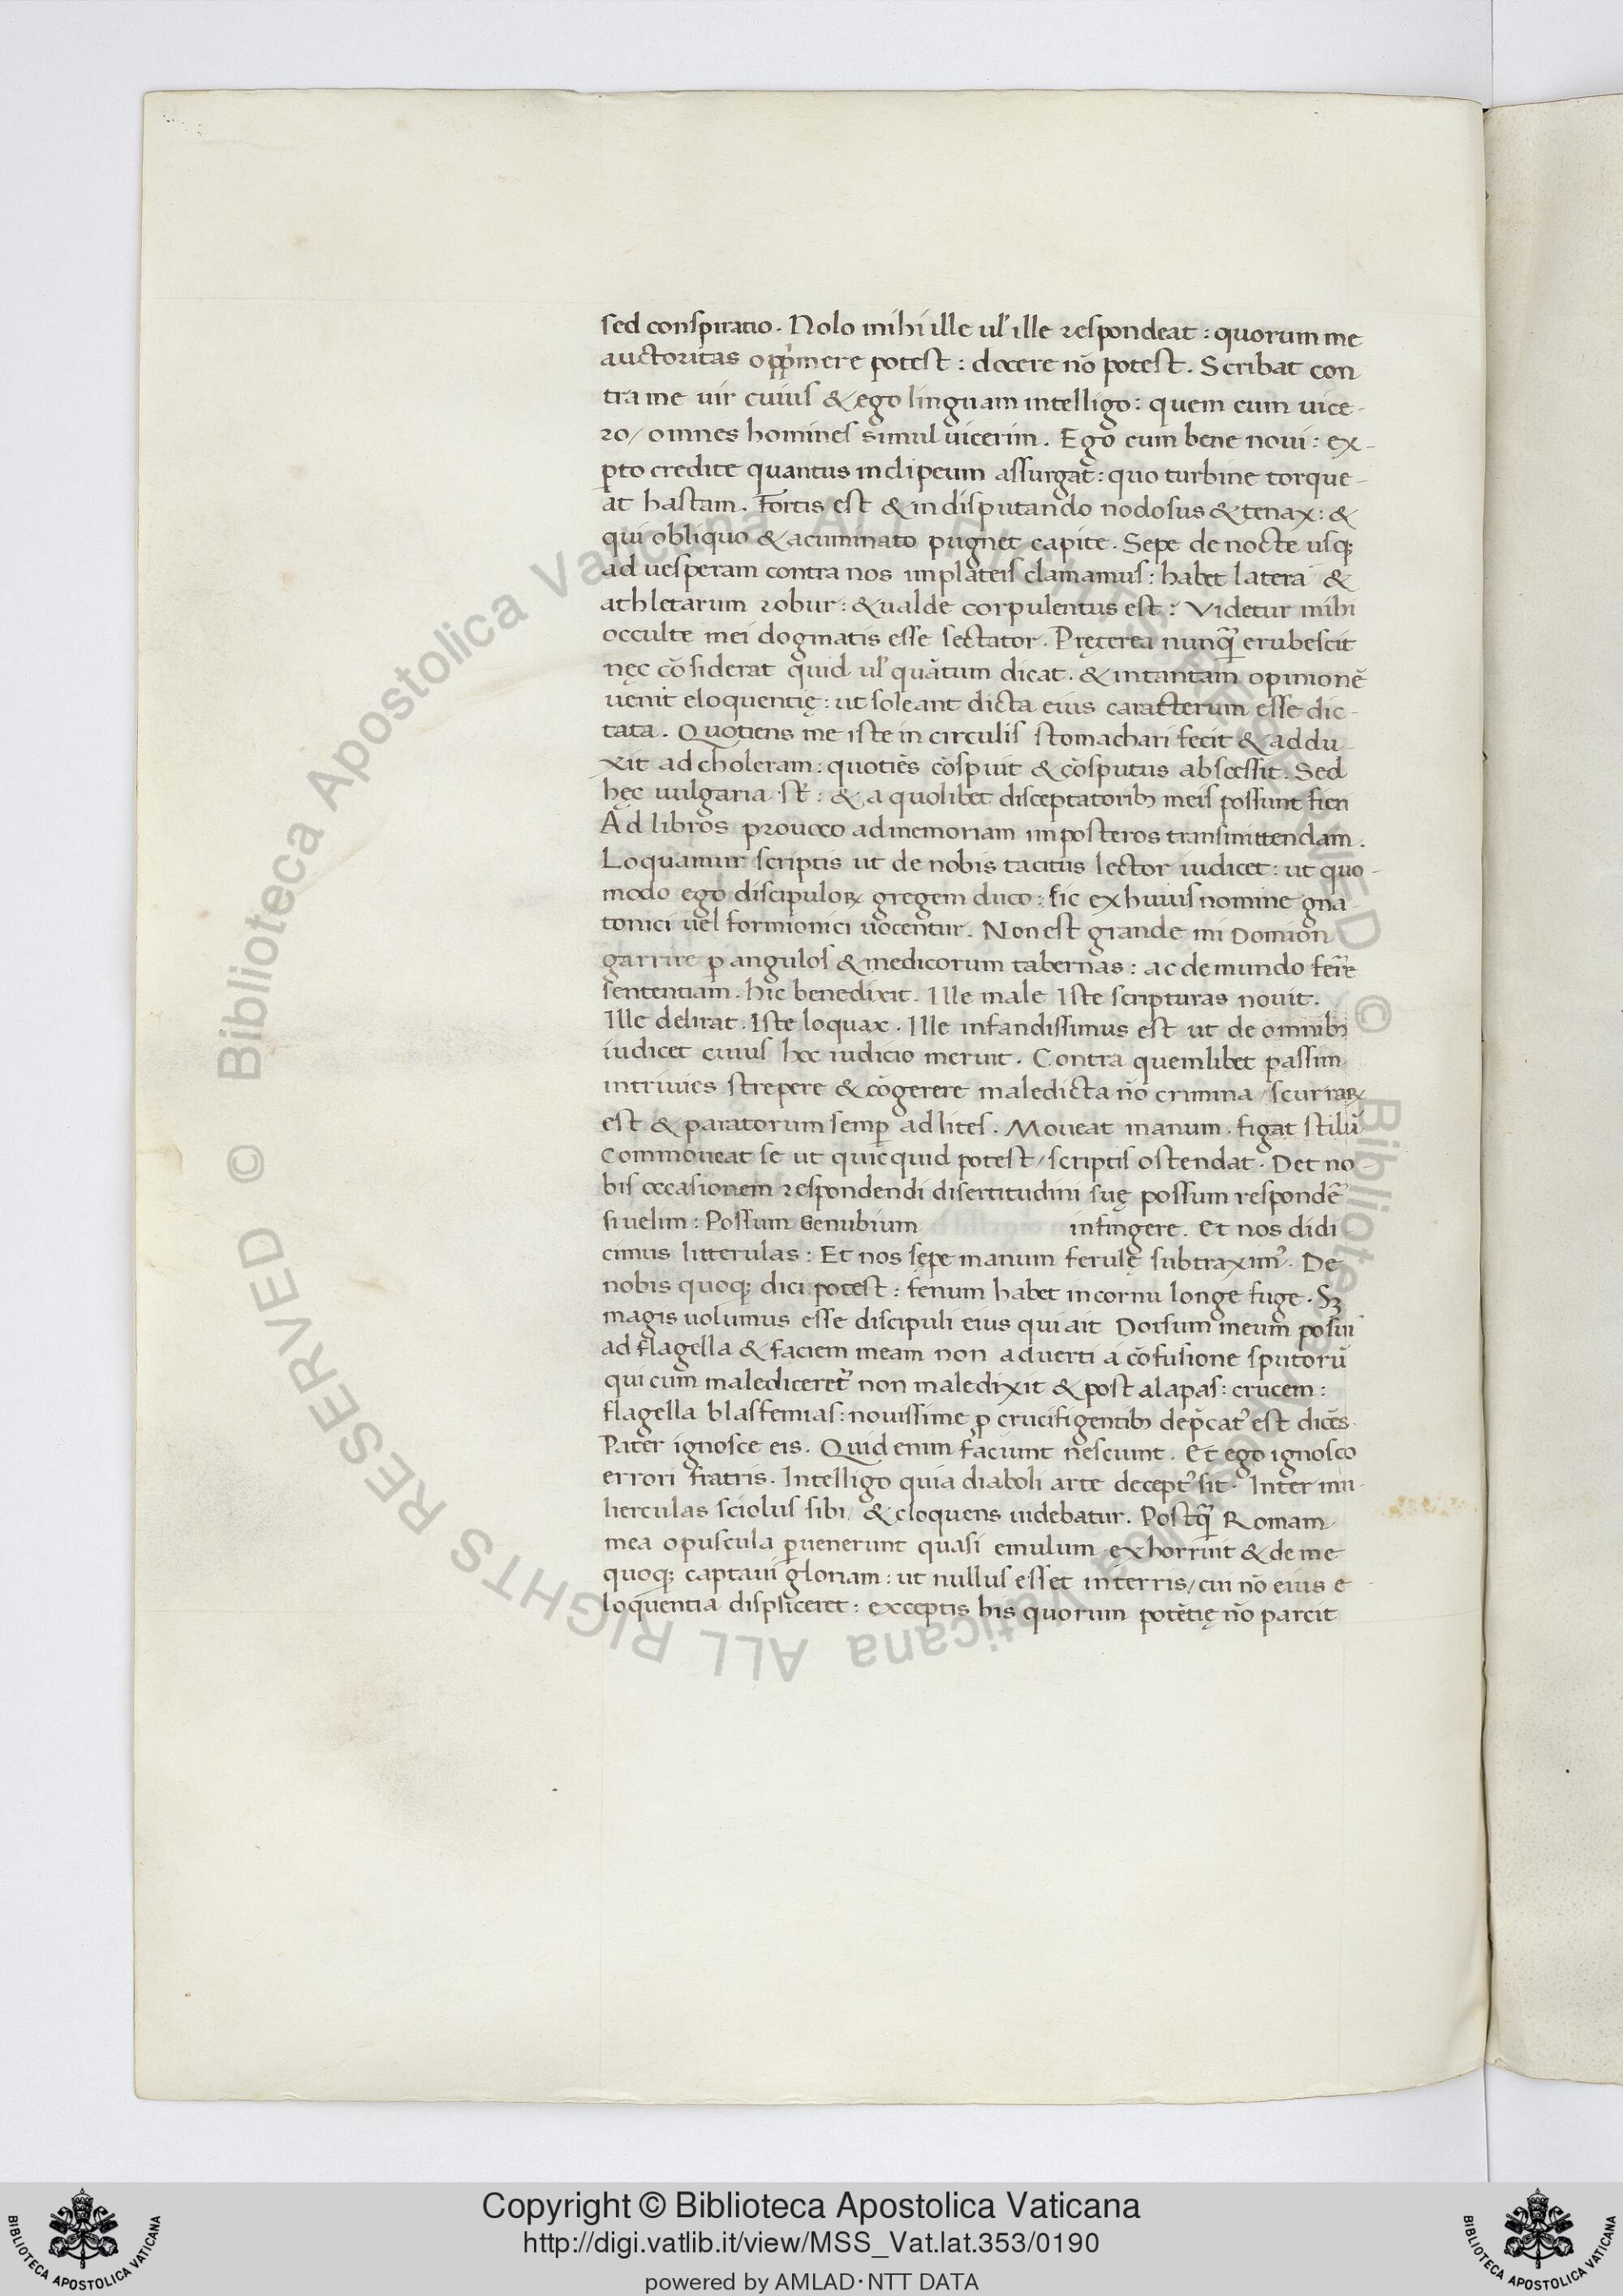 sed conspiratio. Nolo mihi ille ul' ille respondeat: quorum me
auctoritas opp̄mere potest: docere nō potest. Scribat con
tra me uir cuius & ego linguam intelligo: quem cum uice-
ro/ omnes homines simul uicerim. Ego eum bene noui: ex-
ꝑto credite quantus in clipeum assurgat: quo turbine torque-
at hastam. Fortis est & in disputando nodosus & tenax: &
qui obliquo & acuminato pugnet capite. Sepe de nocte usq;
ad uesperam contra nos in plateis clamamus: habet latera &
athletarum robur: & ualde corpulentus est: Videtur mihi
occulte mei dogmatis esse sectator. Pręterea nunq̄ erubescit
nęc cōsiderat quid ul' quātum dicat. & in tantam opinionē
uenit eloquentię: ut soleant dicta eius caracterum esse dic-
tata. Quotiens me iste in circulis stomachari fecit & addu-
xit ad choleram: quotiēs cōspuit & cōsputus abscessit. Sed
hęc uulgaria st̄: & a quolibet disceptatorib; meis possunt fieri
Ad libros prouoco ad memoriam in posteros transmittendam.
Loquamur scriptis ut de nobis tacitus lector iudicet: ut quo-
modo ego discipuloꝝ gregem duco: sic ex huius nomine gna
tonici uel formionici uocentur. Non est grande mi Domion
garrire ꝑ angulos & medicorum tabernas: ac de mundo ferr̄e
sententiam. hic benedixit. Ille male Iste scripturas nouit.
Ille delirat. Iste loquax. Ille infandissimus est ut de omnib;
iudicet cuius hoc iudicio meruit. Contra quemlibet passim
in triuies strepere & cōgerere maledicta nō crimina/ scurraꝝ
est & paratorum semꝑ ad lites. Moueat manum. figat stilū
commoueat se ut quicquid potest/ scriptis ostendat. Det no-
bis occasionem respondendi disertitudini suę possum respondē
si uelim: Possum Genubium infingere. Et nos didi
cimus litterulas: Et nos sępe manum ferulę subtraximꝰ. De
nobis quoq; dici potest: fenum habet in cornu longe fuge. Sꝫ
magis uolumus esse discipuli eius qui ait Dorsum meum posui
ad flagella & faciem meam non aduerti a cōfusione sputorū
qui cum malediceretꝰ non maledixit & post alapas: crucem:
flagella blasfemias: nouissime ꝓ crucifigentib; dep̄catꝰ est dicēs.
Pater ignosce eis. Quid enim faciunt nesciunt. Et ego ignosco
errori fratris. Intelligo quia diaboli arte deceptꝰ sit. Inter mu-
lierculas sciolus sibi/ & eloquens uidebatur. Postq̄ Romam
mea opuscula ꝑuenerunt quasi emulum exhorruit & de me
quoq; captaui gloriam: ut nullus esset in terris/ cui nō eius e
loquentia displiceret: exceptis his quorum potētię nō parcit
© Biblioteca Apostolica Vaticana ALL RIGHTS RESERVED © Biblioteca Apostolica Vaticana ALL RIGHTS RESERVED
Copyright © Biblioteca Apostolica Vaticana
http://digi.vatlib.it/view/MSS_Vat.lat.353/0190
powered by AMLAD·NTT DATA
BIBLIOTECA APOSTOLICA VATICANA
BIBLIOTECA APOSTOLICA VATICANA